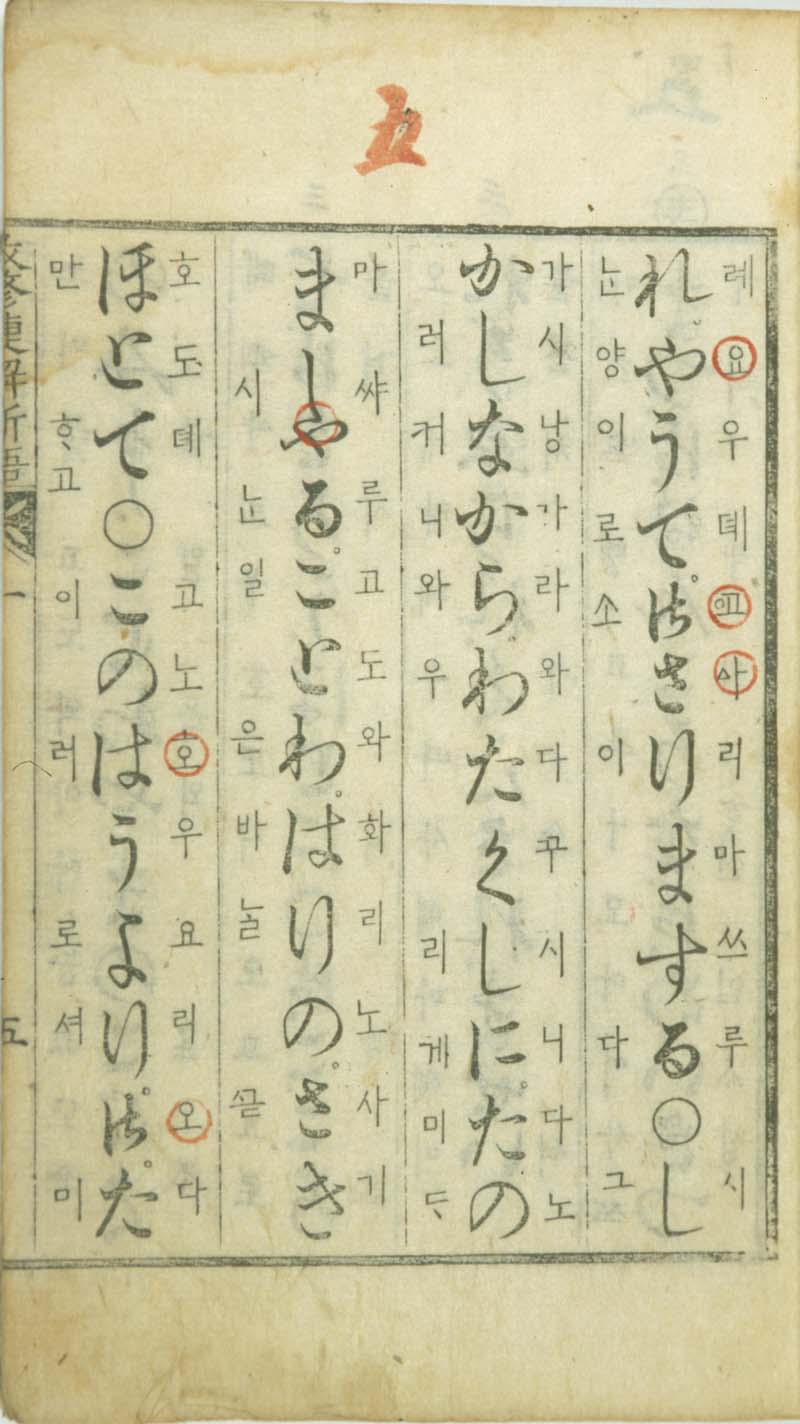 五
례요우뎨사리마쓰루시
れやうて御さりまする○し
ᄂᆞᆫ양이로소이다그
가시낭가라와다꾸시니다노
かしなからわたくしにたの
러커니와우리게미ᄃᆞ
마쌰루고도와화리노사기
ましやることわはりのさき
시ᄂᆞᆫ일은바ᄂᆞᆯᄭᅳᆮ
호도뎨고노호우요리오다
ほとて○このはうより御た
만ᄒᆞ고이러로셔미
改修捷解新語 一 五